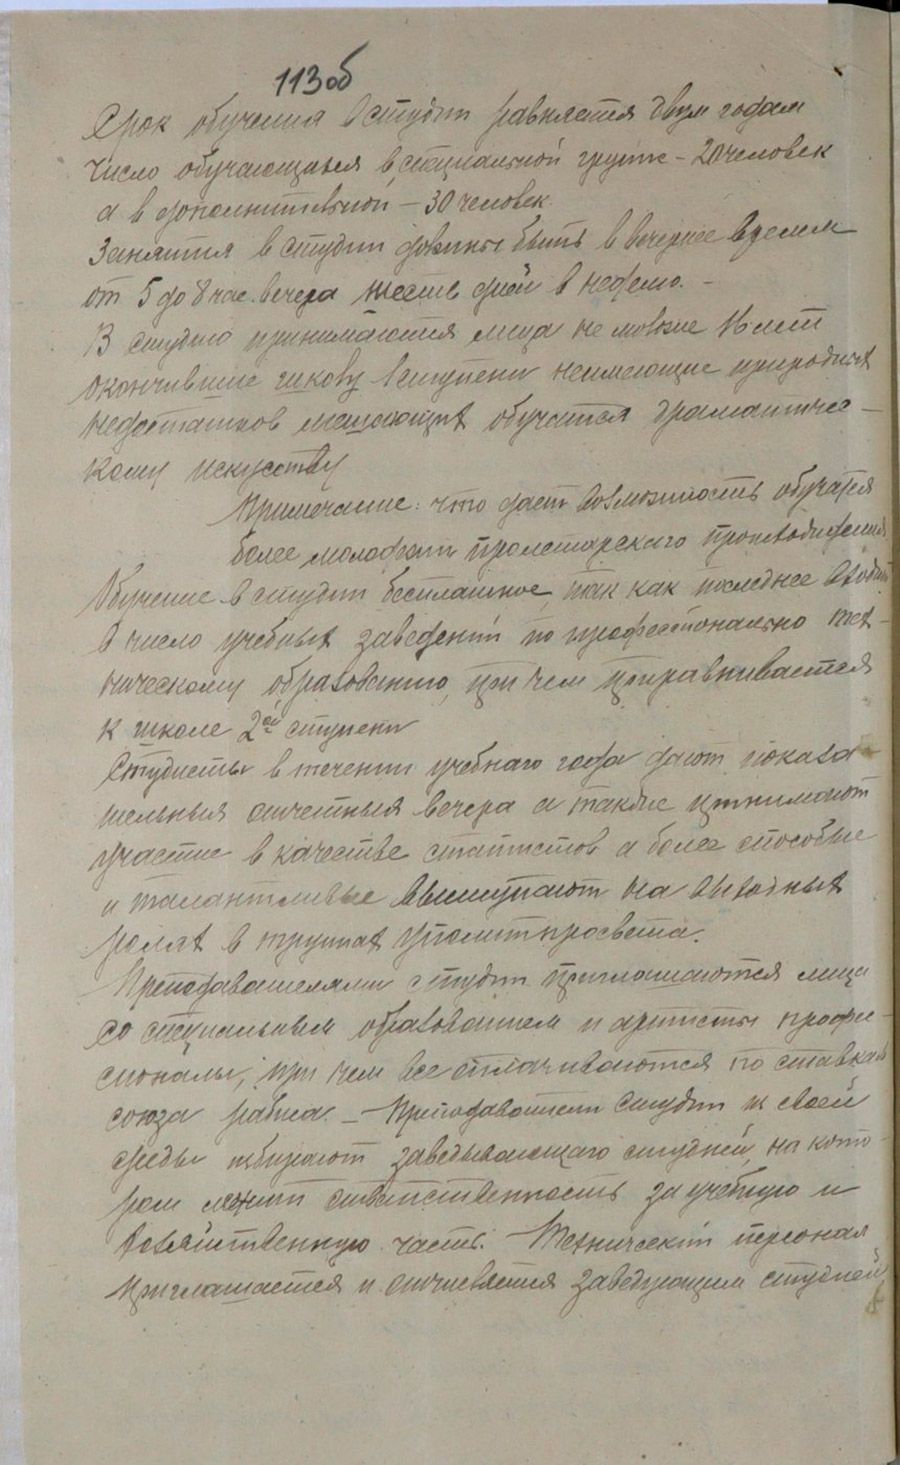 113об
Срок обучения в студии равняется двум годам
число обучающихся в специальной группе – 20 человек
а в дополнительной – 30 человек
Занятия в студии должны быть в вечернее время
от 5 до 8 час. вечера шесть дней в неделю. –
В студию принимаются лица не моложе 16 лет
окончившие школу I ступени неимеющие природных
недостатков мешающих обучатся драматичес–
кому искусству
Примечание: что дает возможность обучатся
более молодежи пролетарского происхождения
Обучение в студии бесплатное, так как последнее входит
в число учебных заведений по профессионально тех–
ническому образованию, при чем приравнивается
к школе 2ой ступени
Студисты в течении учебнаго года дают показа–
тельныя отчетныя вечера а также принимают
участие в качестве статистов а более способные
и талантливые выступают на выходных
ролях в труппах Уполитпросвета.
Преподавателями студии приглашаются лица
со специальным образованием и артисты профе–
сионалы, при чем все оплачиваются по ставкам
союза рабиса. – Преподаватели Студии из своей
среды избирают заведывающаго студией, на кото–
ром лежит ответственность за учебную и
хозяйственную часть. Технический персонал
приглашается и отчисляется заведующим студией